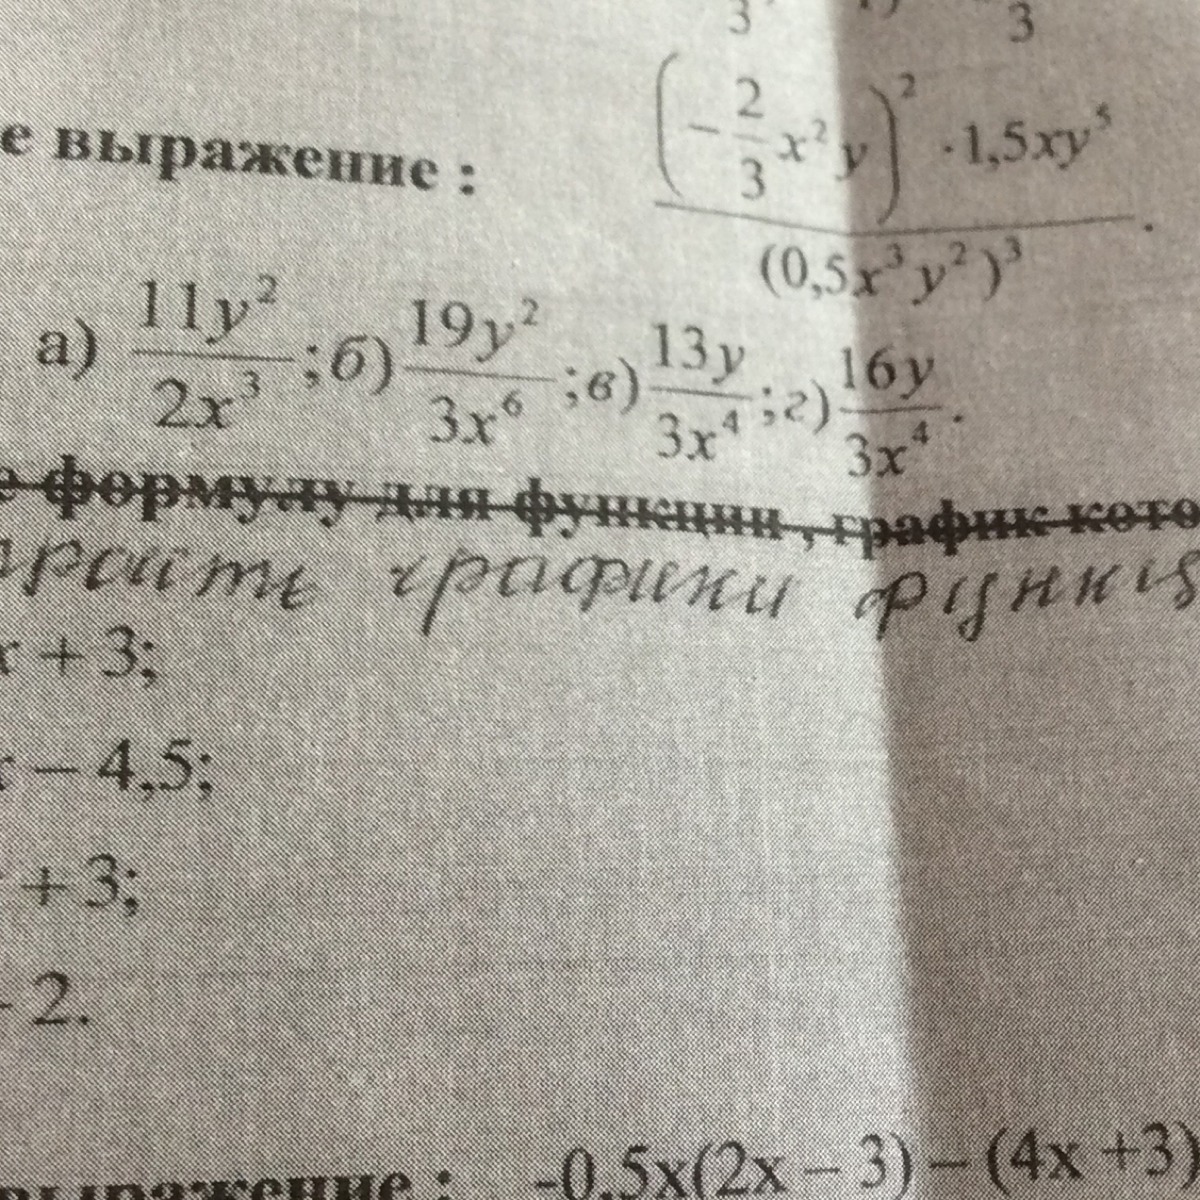 3 3
е выражение : (-2/3 x²y)² · 1,5xy⁵ / (0,5x³y²)³ .
а) 11y²/2x³ ; б) 19y²/3x⁶ ; в) 13y/3x⁴ ; г) 16y/3x⁴ .
е формулу для функции , график кото
роить графики функция
x + 3;
x – 4,5;
+ 3;
- 2.
выражение : -0,5x(2x – 3) – (4x +3)